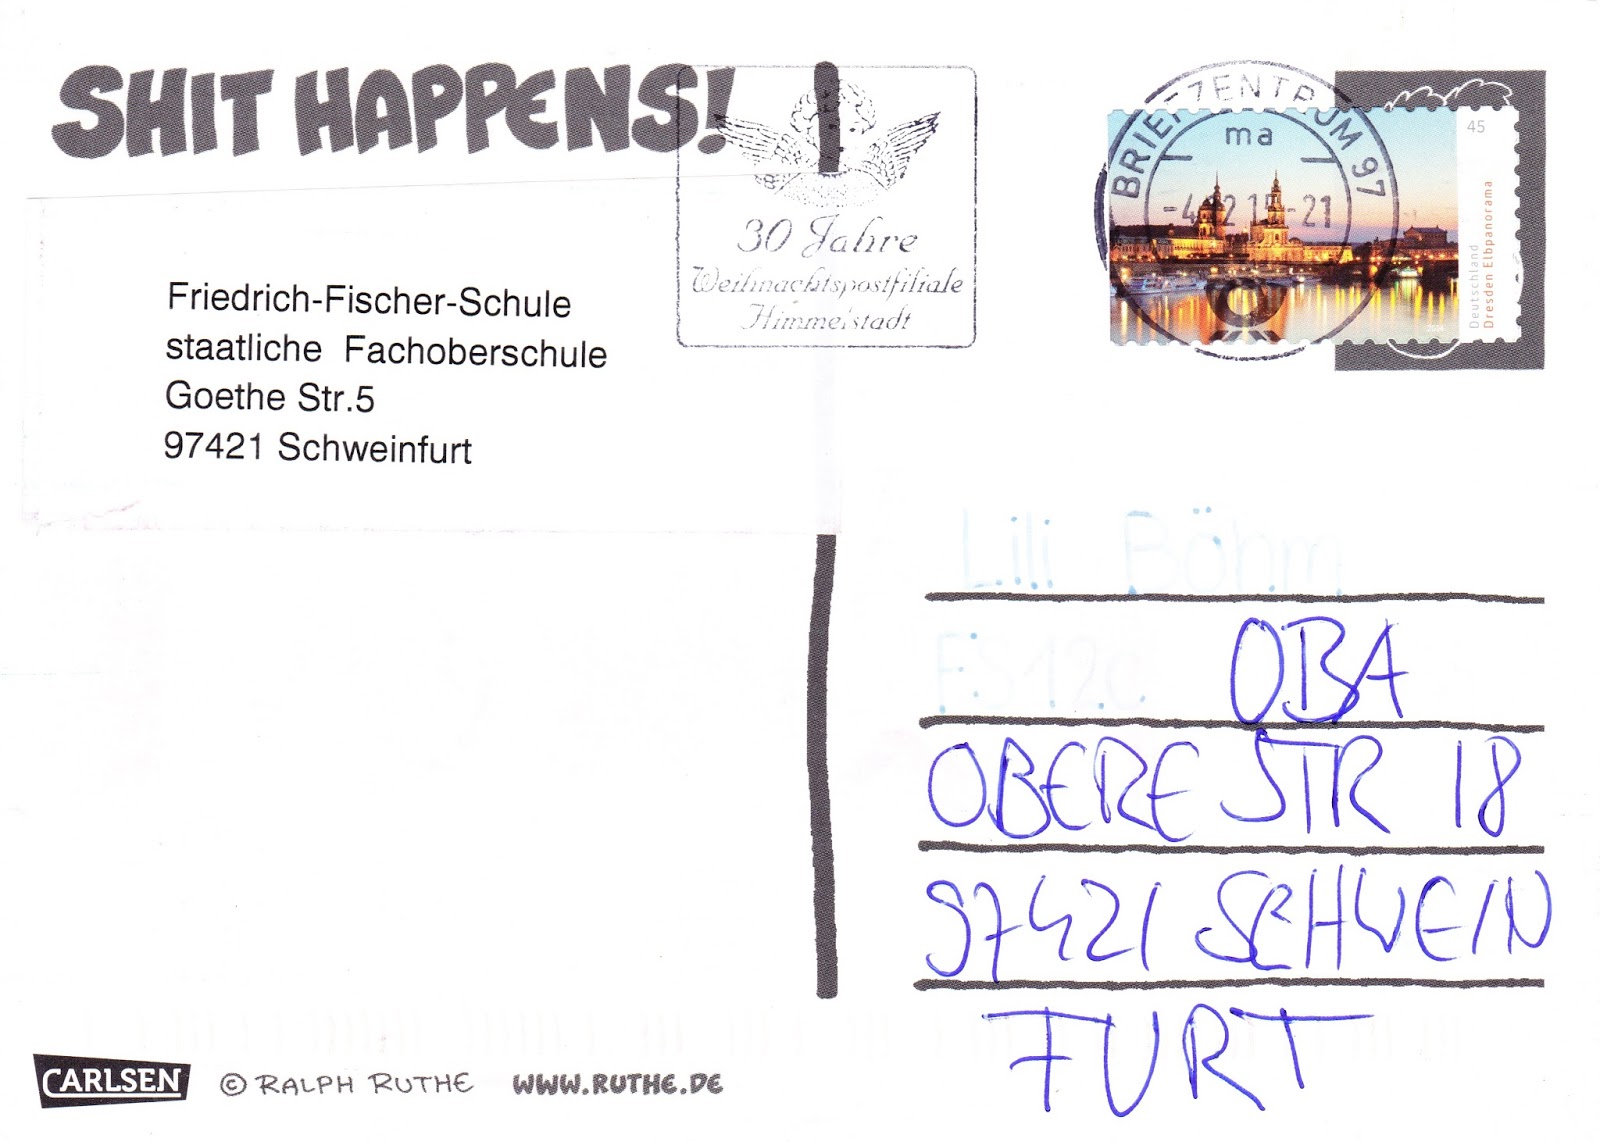 SHIT HAPPENS!
30 Jahre
Weihnachtspostfiliale
Himmelstadt
BRIEFZENTRUM 97
ma
-21
45
Deutschland
Dresden Elbpanorama
Friedrich-Fischer-Schule
staatliche Fachoberschule
Goethe Str.5
97421 Schweinfurt
Lili Böhm
FS12c
OBA
OBERE STR 18
97421 SCHWEIN
FURT
CARLSEN © RALPH RUTHE WWW.RUTHE.DE